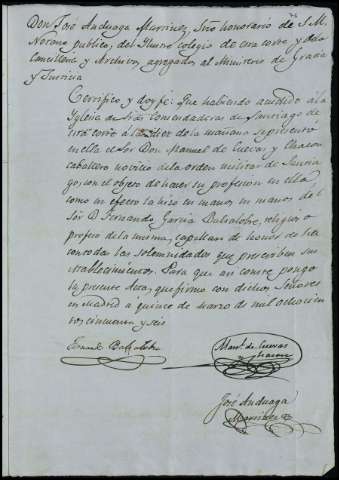 Don José Anduaga Martinez, Srio honorario de S. M.
Notario publico, del Ilustre Colegio de esta corte y de la
Cancilleria y Archivos, agregados al Ministerio de Gracia
y Justicia
Certifico y doy fé: Que habiendo acudido á la
Yglesia de Sras Comendadoras de Santiago de
esta corte á las diez de la mañana se presento
en ella el Sor Don Manuel de Cuevas y Chacon
caballero novicio de la orden militar de Santia
go, con el objeto de hacer su profesion en ella
como en efecto la hizo en manos del
Sor D. Fernando Garcia Balsalobre, religioso
profeso de la misma, capellan de honor de S.M.
con todas las solemnidades que prescriben sus
establecimientos. Para que asi conste pongo
la presente Acta, que firmo con dichos Señores
en Madrid á quince de marzo de mil ochocien
tos cincuenta y seis
Balsalobre
Manl. de Cuevas
y Chacon
José Anduaga
Martinez